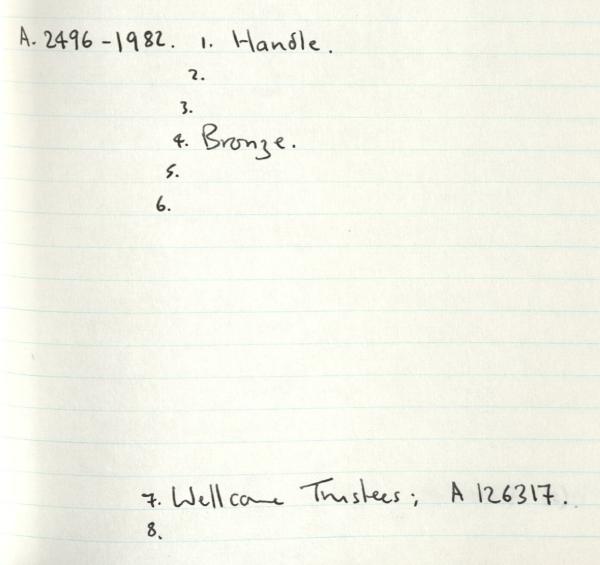 A. 2496-1982. 1. Handle.
2.
3.
4. Bronze.
5.
6.
7. Wellcome Trustees; A 126317.
8.